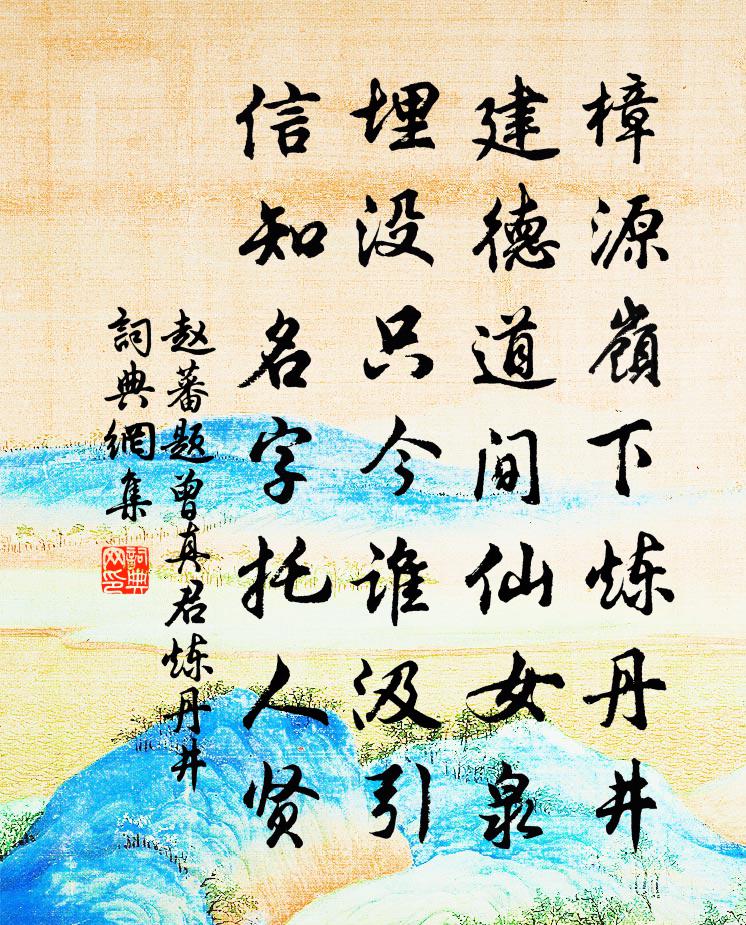 樟源嶺下炼丹井
建德道间仙女泉
埋没只今谁汲引
信知名字托人贤
赵蕃题曾真君炼丹井
詞典網集
詞典网印